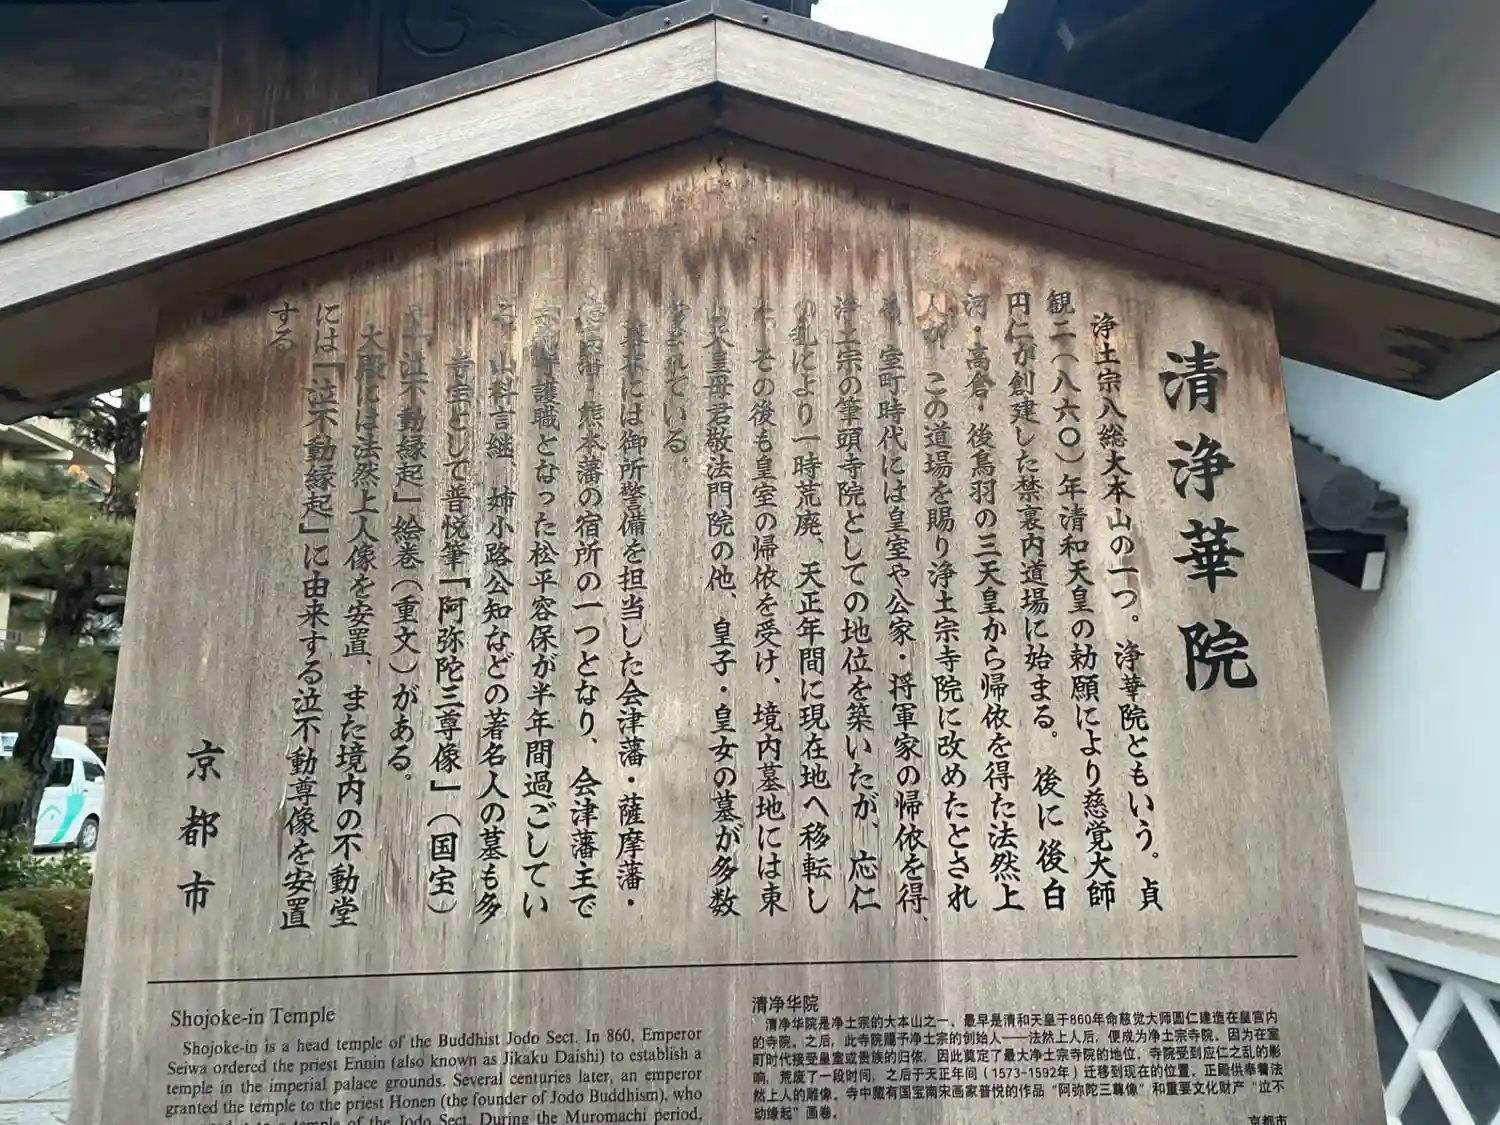 清浄華院
浄土宗八総大本山の一つ。浄華院ともいう。貞
観二（八六〇）年清和天皇の勅願により慈覚大師
円仁が創建した禁裏内道場に始まる。後に後白
河・高倉・後鳥羽の三天皇から帰依を得た法然上
人が、この道場を賜り浄土宗寺院に改めたとされ
室町時代には皇室や公家・将軍家の帰依を得、
浄土宗の筆頭寺院としての地位を築いたが、応仁
の乱により一時荒廃、天正年間に現在地へ移転し
た。その後も皇室の帰依を受け、境内墓地には東
山天皇母君敬法門院の他、皇子・皇女の墓が多数
営まれている。
幕末には御所警備を担当した会津藩・薩摩藩・
徳島藩・熊本藩の宿所の一つとなり、会津藩主で
京都守護職となった松平容保が半年間過ごしてい
る。山科言継、姉小路公知などの著名人の墓も多
寺宝として普悦筆「阿弥陀三尊像」（国宝）
「泣不動縁起」絵巻（重文）がある。
大殿には法然上人像を安置、また境内の不動堂
には「泣不動縁起」に由来する泣不動尊像を安置
する
京都市
Shojoke-in Temple
Shojoke-in is a head temple of the Buddhist Jodo Sect. In 860, Emperor
Seiwa ordered the priest Ennin (also known as Jikaku Daishi) to establish a
temple in the imperial palace grounds. Several centuries later, an emperor
granted the temple to the priest Honen (the founder of Jodo Buddhism), who
it to a temple of the Jodo Sect. During the Muromachi period,
清净华院
清净华院是净土宗的大本山之一。最早是清和天皇于860年命慈觉大师圆仁建造在皇宫内
的寺院。之后，此寺院赐予净土宗的创始人——法然上人后，便成为净土宗寺院。因为在室
町时代接受皇室或贵族的归依，因此奠定了最大净土宗寺院的地位。寺院受到应仁之乱的影
响，荒废了一段时间，之后于天正年间（1573-1592年）迁移到现在的位置。正殿供奉着法
然上人的雕像。寺中藏有国宝南宋画家普悦的作品“阿弥陀三尊像”和重要文化财产“泣不
动缘起”画卷。
京都市